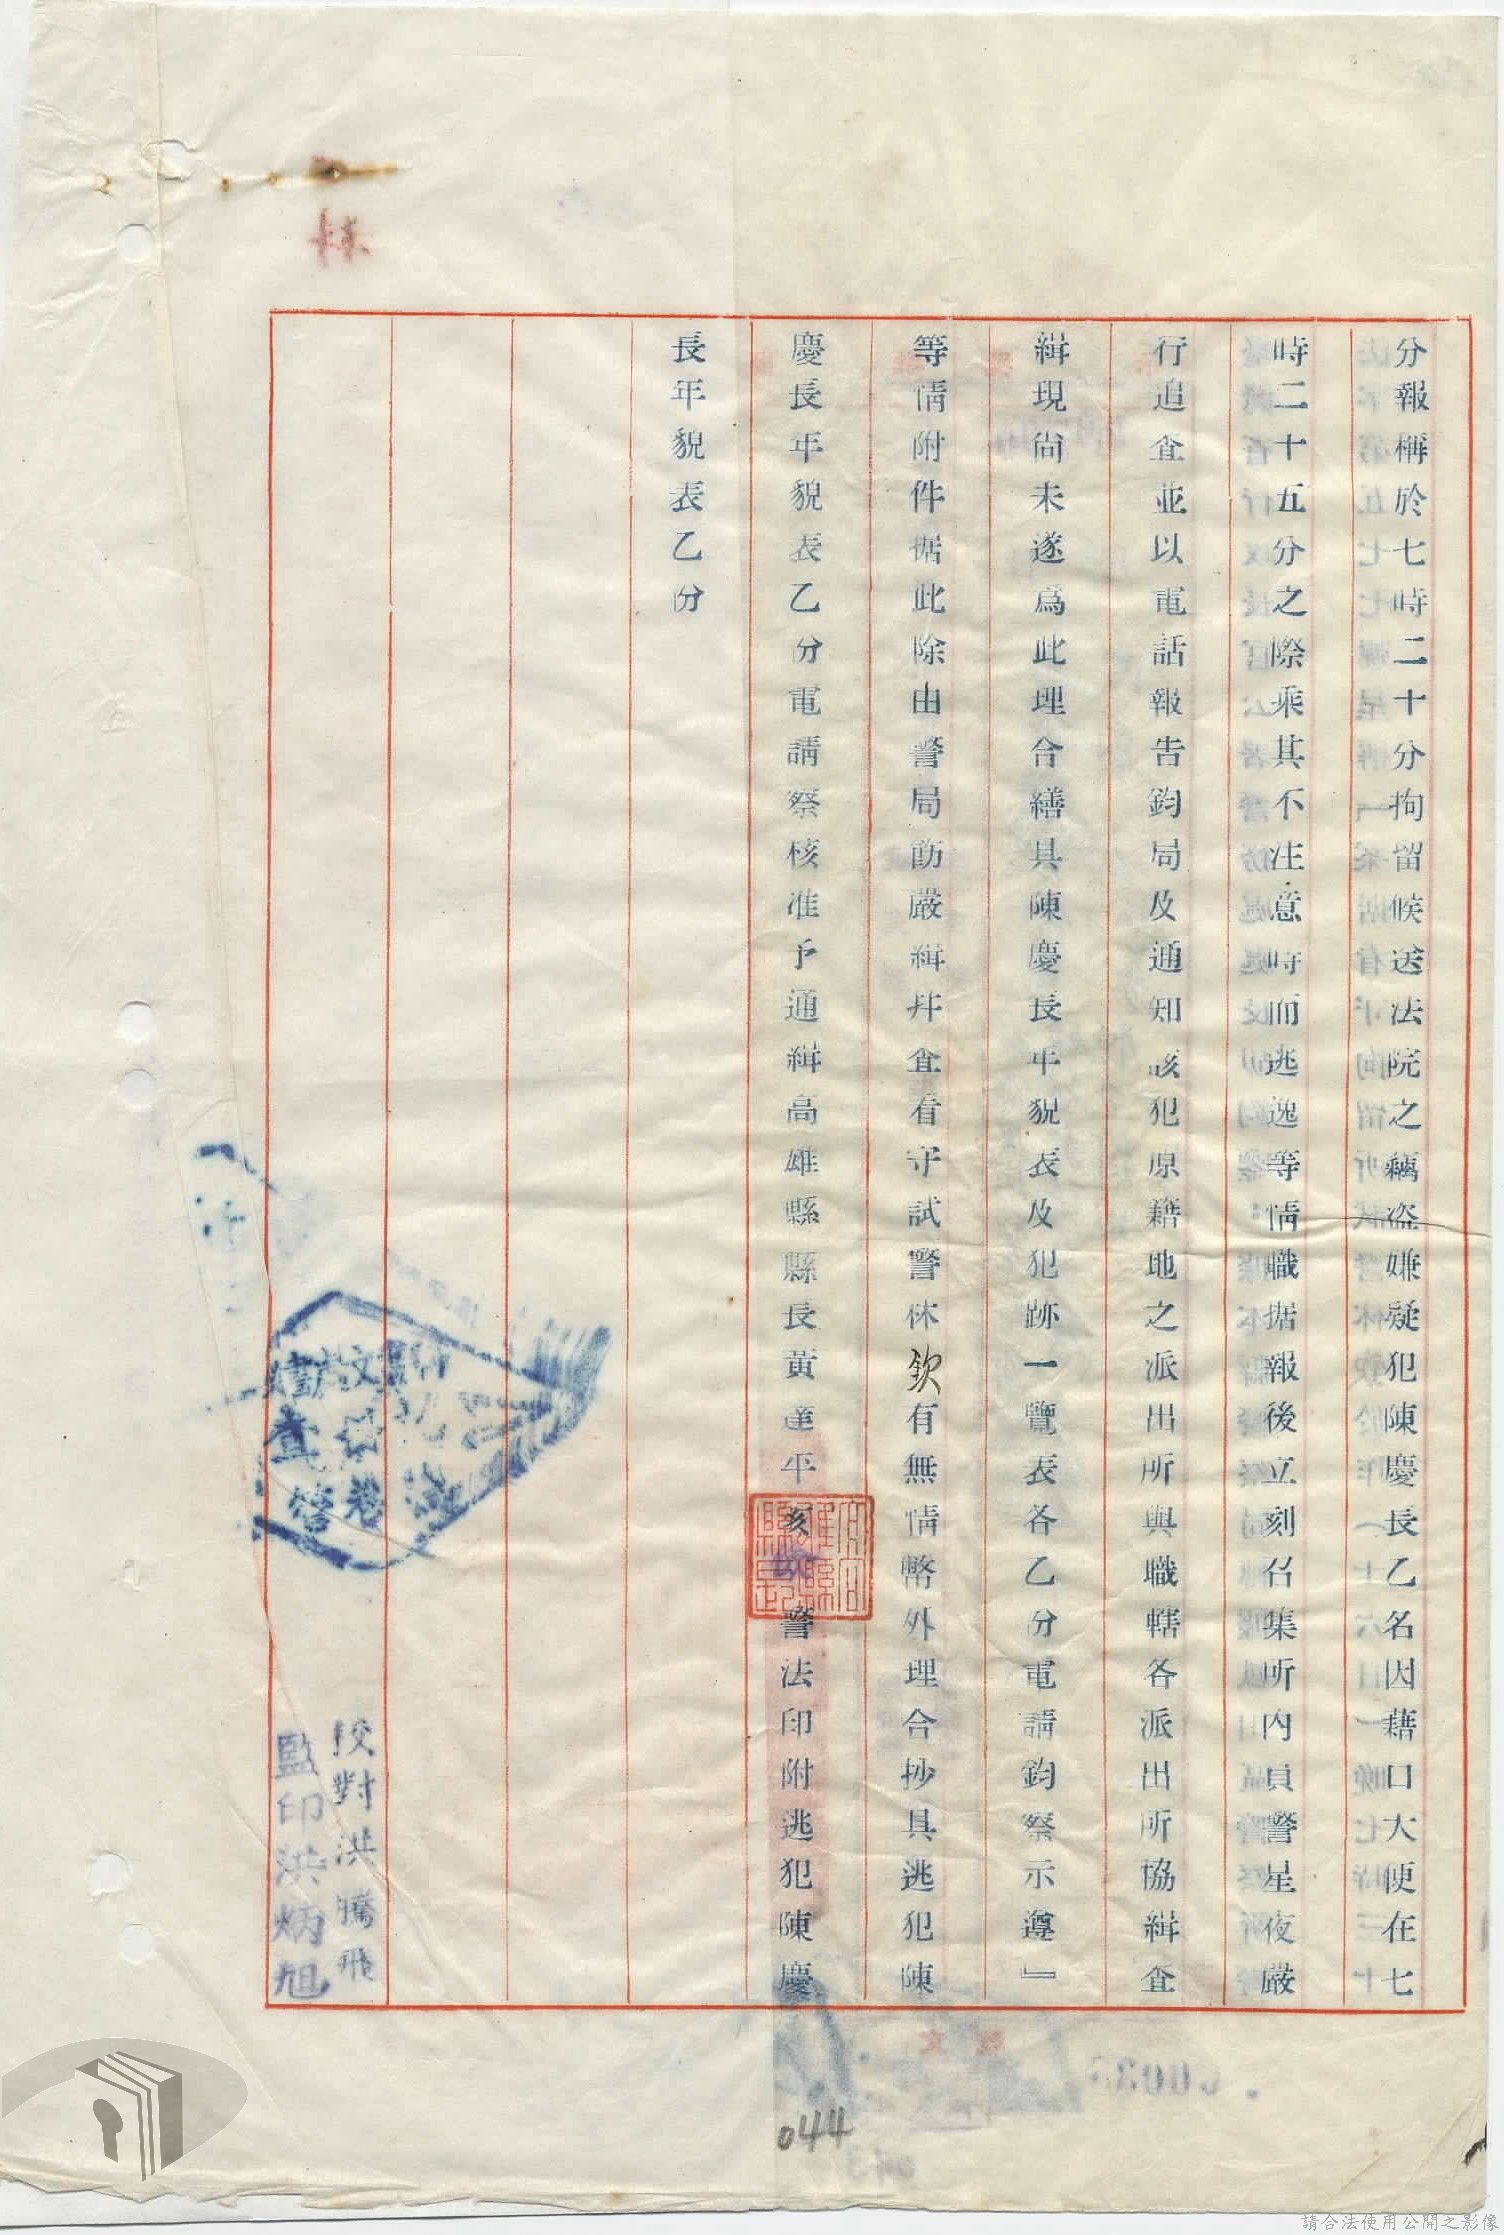 分報稱於七時二十分拘留候送法院之竊盗嫌疑犯陳慶長乙名因藉口大便在七
時二十五分之際乘其不注意時而逃逸等情職据報後立刻召集所內員警星夜嚴
行追查並以電話報告鈞局及通知該犯原籍地之派出所與職轄各派出所協緝查
緝現尙未遂爲此理合繕具陳慶長年貌表及犯跡一覽表各乙分電請鈞察示遵』
等情附件据此除由警局飭嚴緝幷查看守試警休欽有無情弊外理合抄具逃犯陳
慶長年貌表乙分電請察核准予通緝高雄縣縣長黃達平亥警法印附逃犯陳慶
長年貌表乙份
高雄縣縣長
校對洪騰飛
監印洪炳旭
044
請合法使用公開之影像